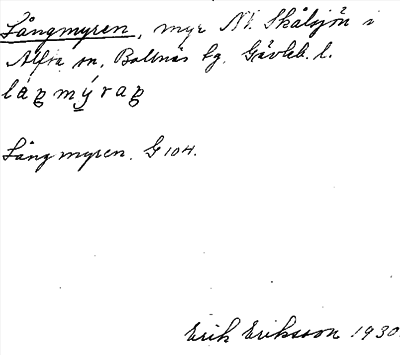 Långmyren, myr NV. Skålsjön i
Alfta sn, Bollnäs tg. Gävleb. l.
Långmyren. G 104.
Erik Eriksson 1930.